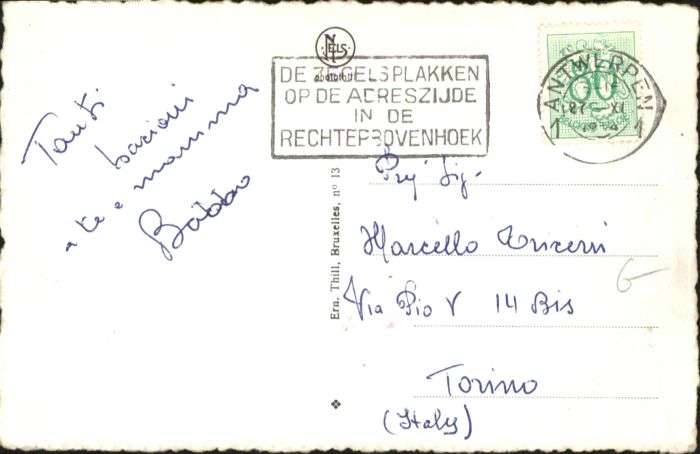 Tanti
bacioni
a te e mamma
Babbo
NELS
DE ZEGELS PLAKKEN
OP DE ADRESZIJDE
IN DE
RECHTERBOVENHOEK
ANTWERPEN
1 1
27 XI
80
Ern. Thill, Bruxelles, n° 13
Sig.
Marcello
Via Pio V 14 Bis
Torino
(Italy)